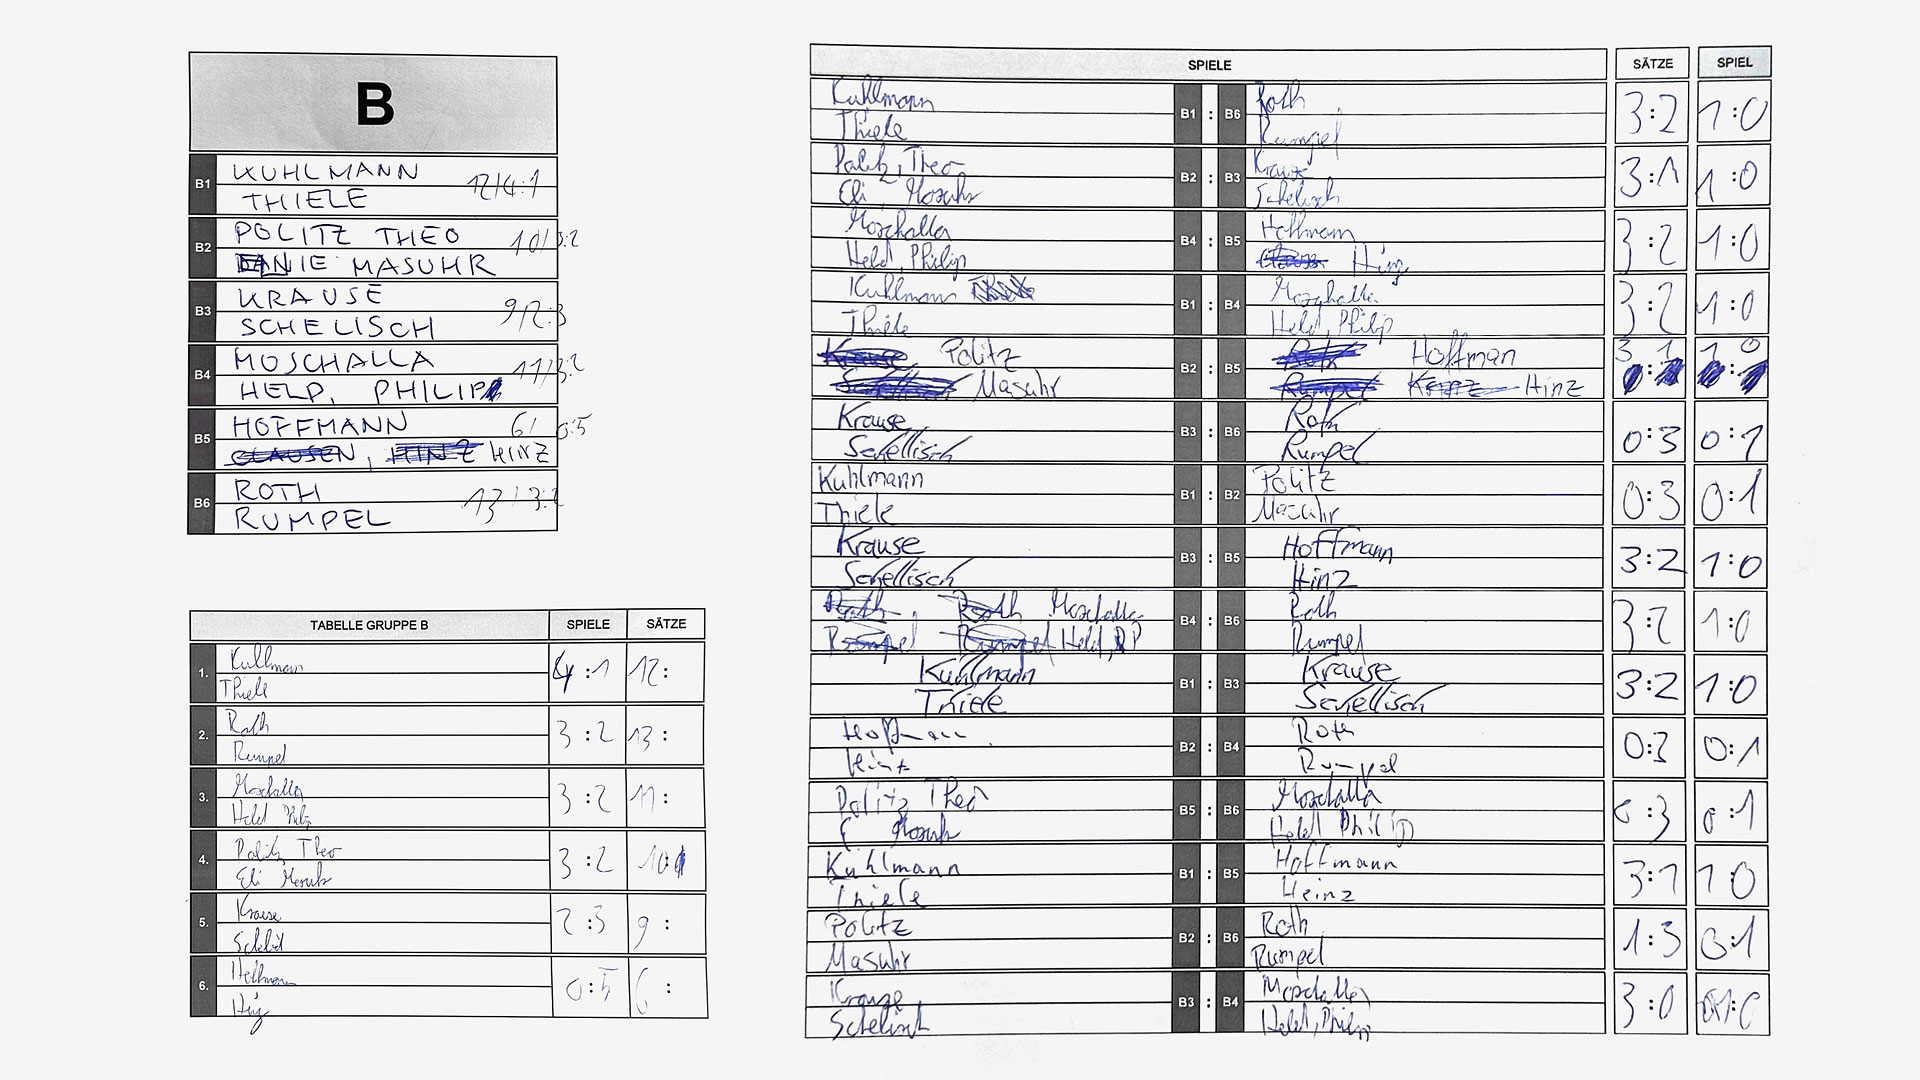 B
B1
KUHLMANN
THIELE
12/4:1
B2
POLITZ THEO
MASUHR
10/3:2
B3
KRAUSE
SCHELISCH
9/2:3
B4
MOSCHALLA
HELD, PHILIP
11/3:2
B5
HOFFMANN
HINZ
6/0:5
B6
ROTH
RUMPEL
13/3:2
TABELLE GRUPPE B SPIELE SÄTZE
1. Kuhlmann
Thiele
4:1 12:
2. Roth
Rumpel
3:2 13:
3. Moschalla
Held Philip
3:2 11:
4. Politz Theo
Eli Masuhr
3:2 10:
5. Krause
2:3 9:
6. Hoffmann
Hinz
0:5 6:
SPIELE SÄTZE SPIEL
Kuhlmann B1 : B6 Roth 3:2 1:0
Thiele Rumpel
Politz, Theo B2 : B3 Krause 3:1 1:0
Eli, Masuhr Schelisch
Moschalla B4 : B5 Hoffmann 3:2 1:0
Held, Philip Hinz
Kuhlmann B1 : B4 Moschalla 3:2 1:0
Thiele Held, Philip
Politz B2 : B5 Hoffman 3 1 1 0
Masuhr Hinz
Krause B3 : B6 Roth 0:3 0:1
Schellisch Rumpel
Kuhlmann B1 : B2 Politz 0:3 0:1
Thiele Masuhr
Krause B3 : B5 Hoffmann 3:2 1:0
Schellisch Hinz
Moschalla B4 : B6 Roth 3:2 1:0
Held, P Rumpel
Kuhlmann B1 : B3 Krause 3:2 1:0
Thiele Schellisch
Hoffmann B2 : B4 Roth 0:3 0:1
Hinz Rumpel
Politz Theo B5 : B6 Moschalla 0:3 0:1
Masuhr Held Philip
Kuhlmann B1 : B5 Hoffmann 3:1 1:0
Thiele Heinz
Politz B2 : B6 Roth 1:3 0:1
Masuhr Rumpel
Krause B3 : B4 Moschalla 3:0 1:0
Schelisch Held, Philip